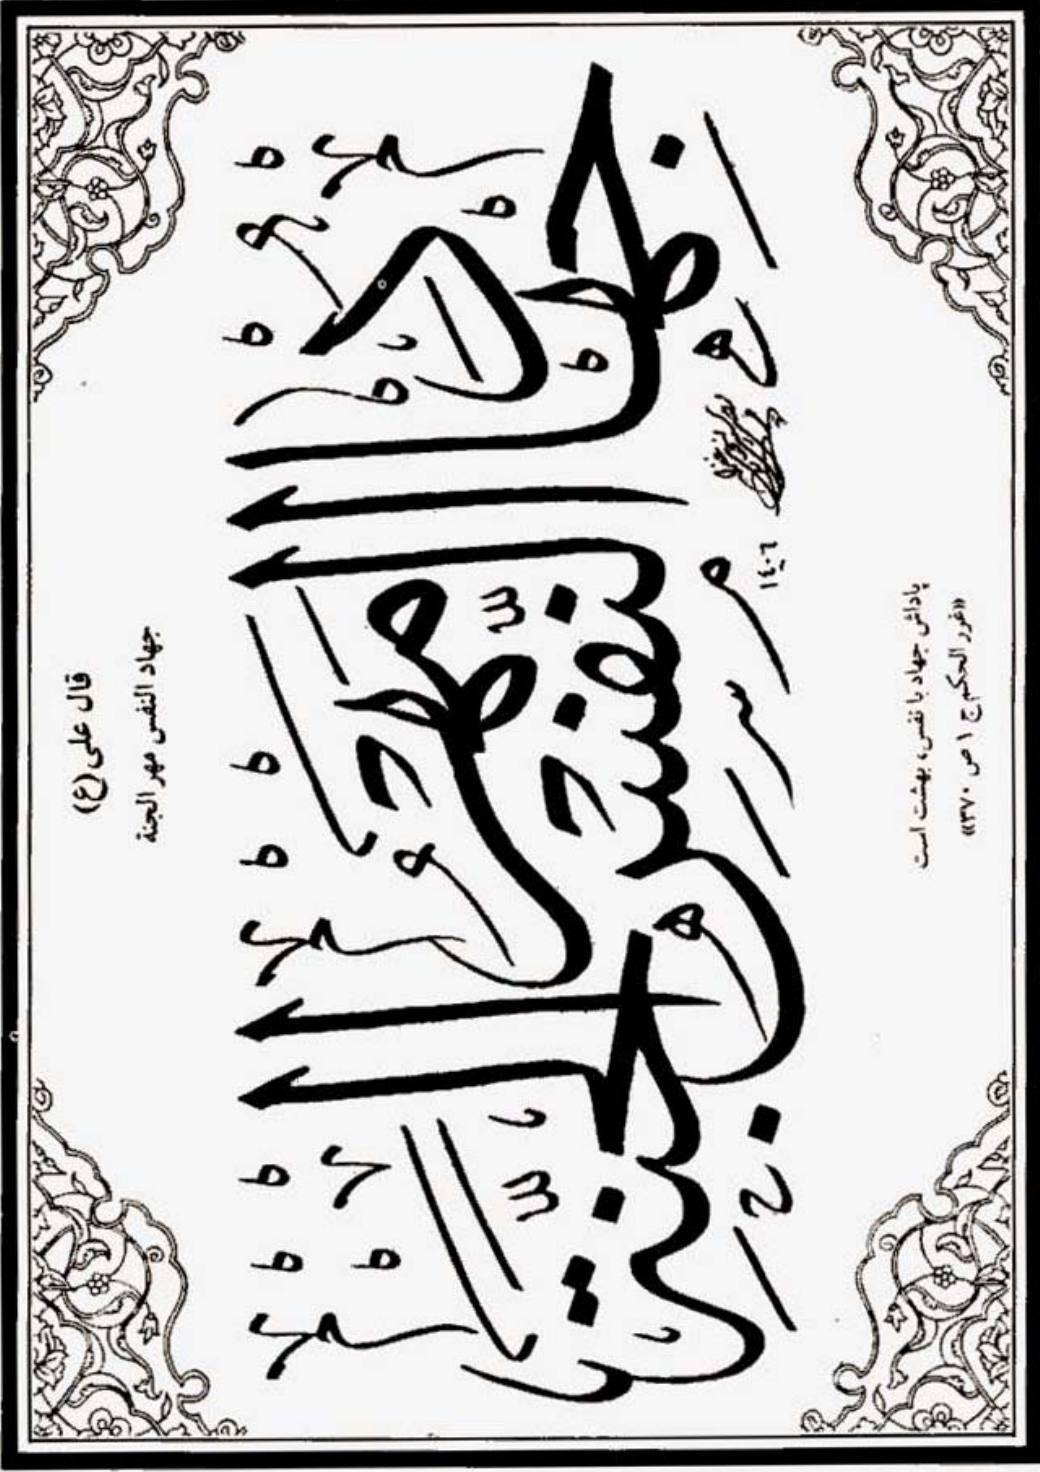 قال علی (ع)
جهاد النفس مهر الجنة
جهاد النفس مهر الجنة
١٤٠٦
پاداش جهاد با نفس، بهشت است
«غرر الحکم ج ١ ص ٣٧٠»